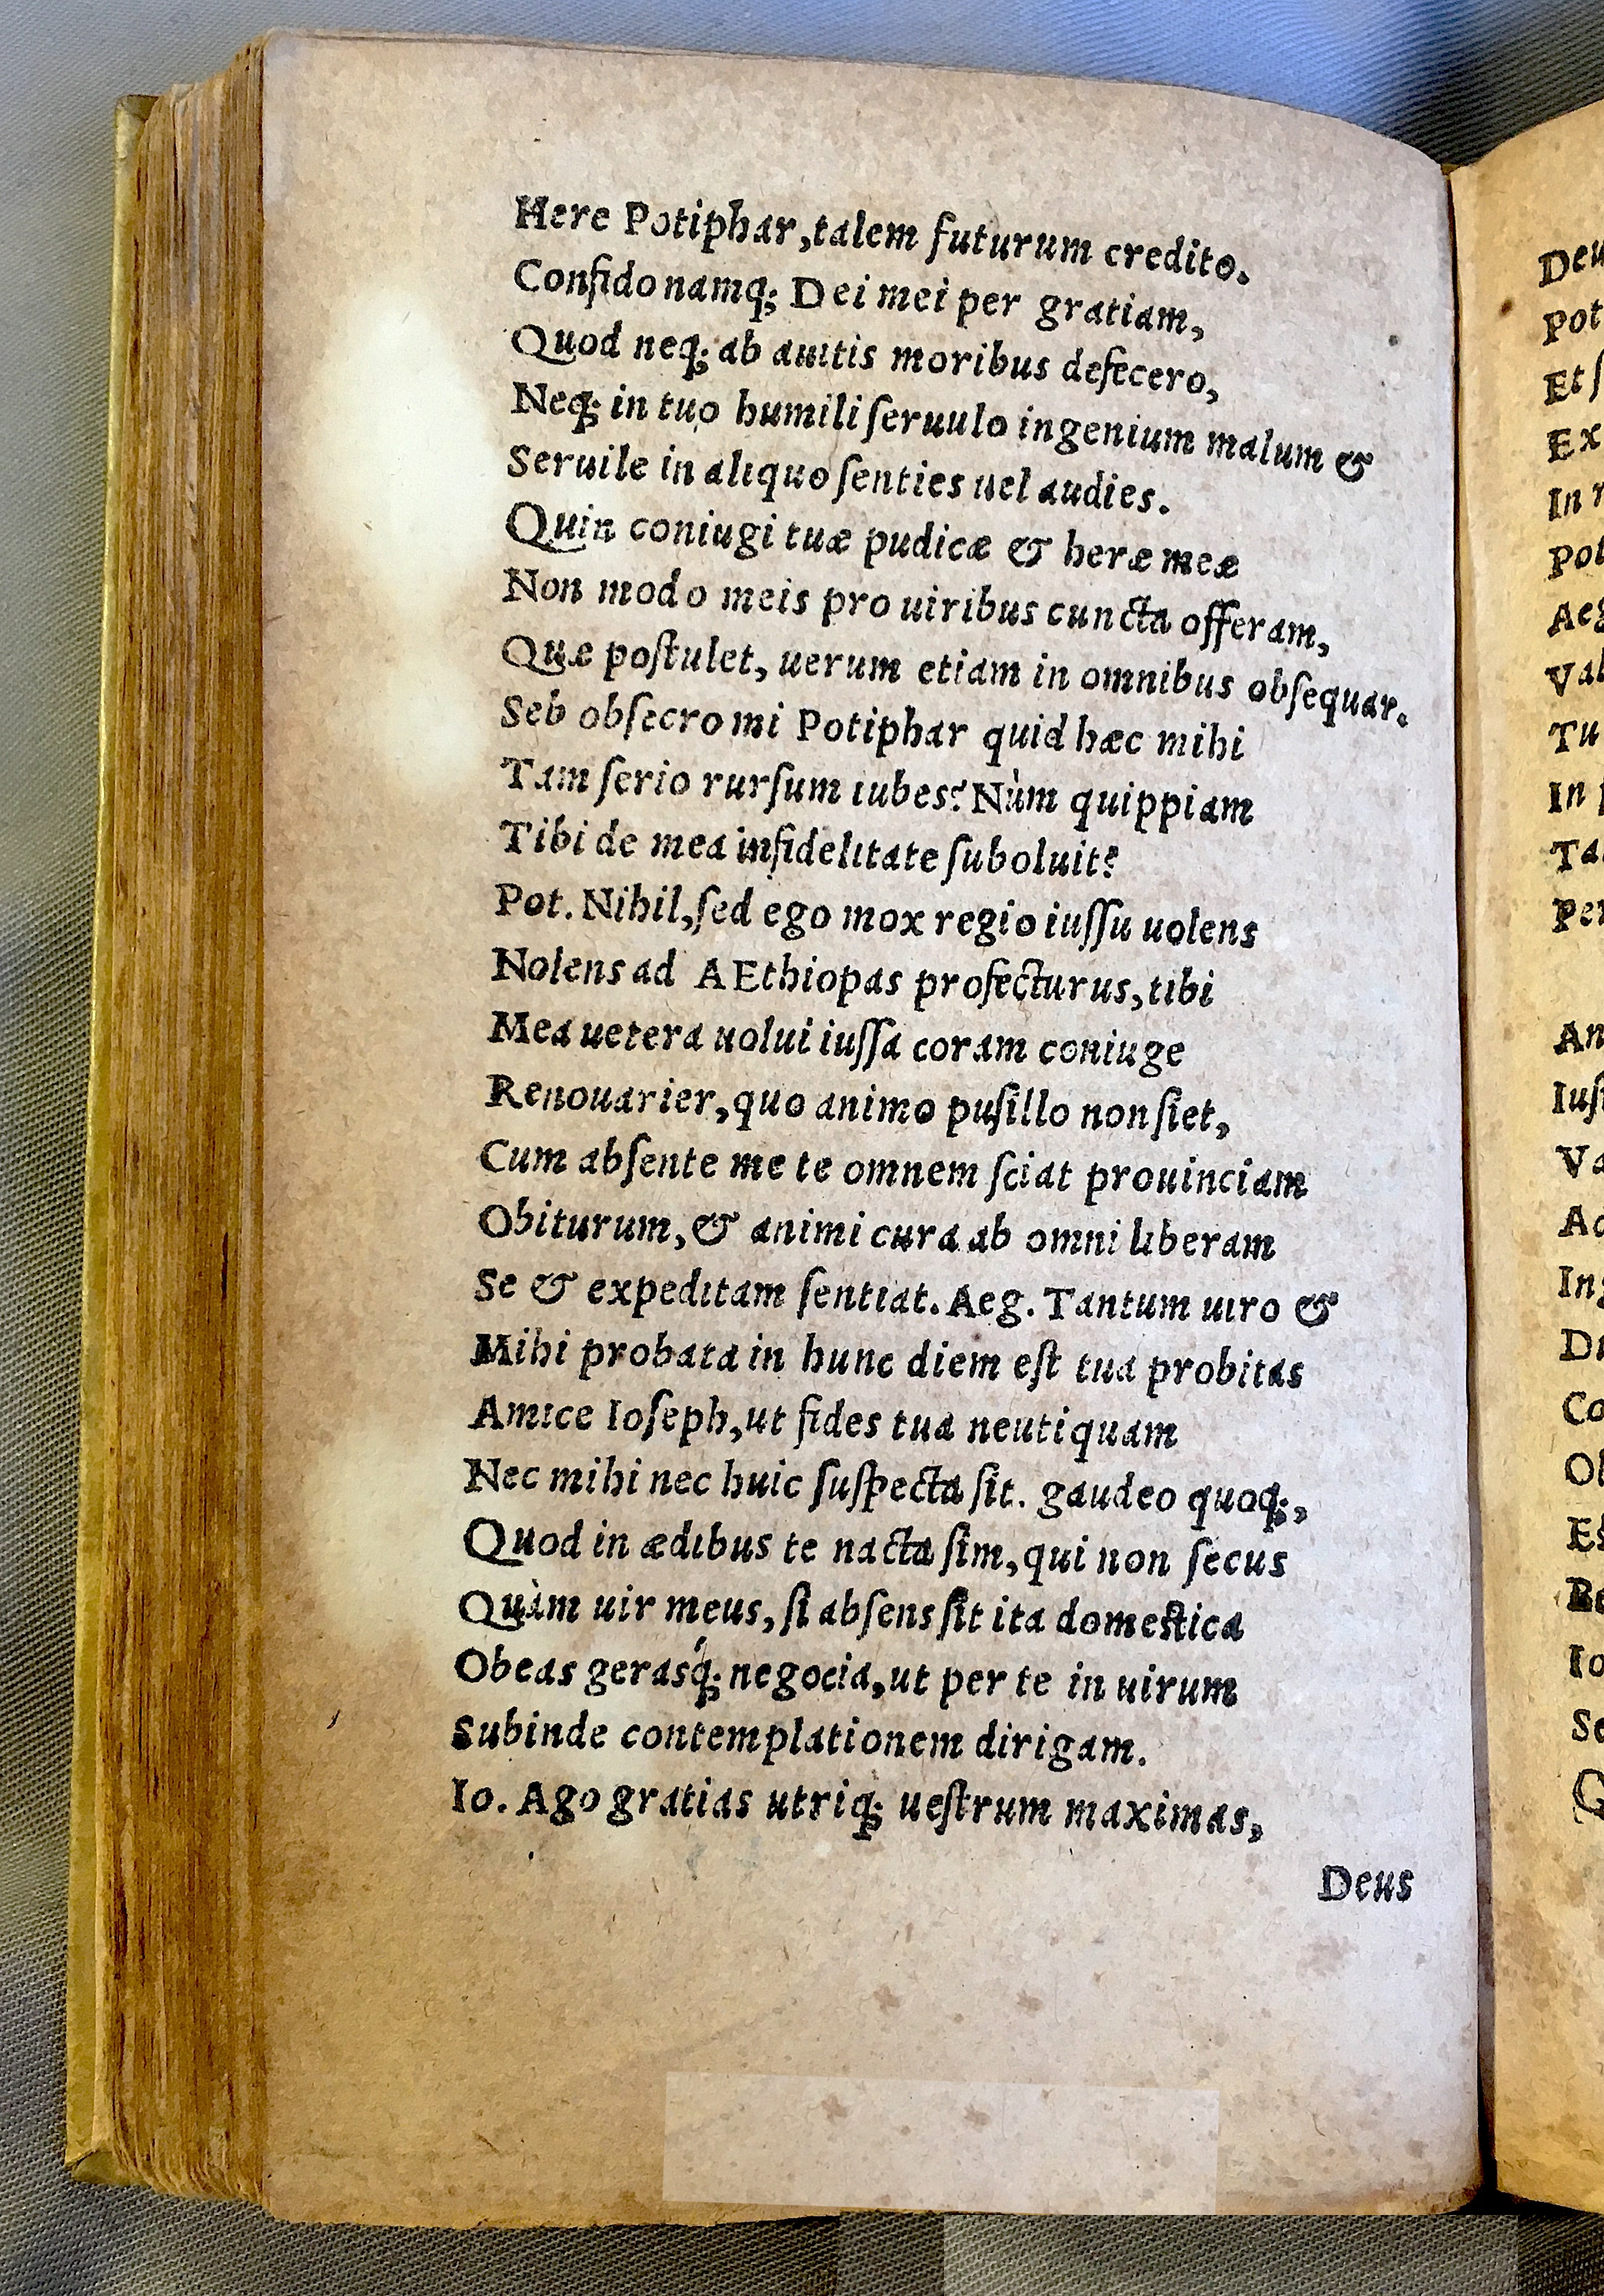 Here Potiphar, talem futurum credito.
Confido namq; Dei mei per gratiam,
Quod neq; ab auitis moribus defecero,
Neq; in tuo humili ſeruulo ingenium malum &
Seruile in aliquo ſenties uel audies.
Quin coniugi tuæ pudicæ & heræ meæ
Non modo meis pro uiribus cuncta offeram,
Quæ poſtulet, uerum etiam in omnibus obſequar.
Seb obſecro mi Potiphar quid hæc mihi
Tam ſerio rurſum iubes? Nùm quippiam
Tibi de mea infidelitate ſuboluit?
Pot. Nihil, ſed ego mox regio iuſſu uolens
Nolens ad AEthiopas profecturus, tibi
Mea uetera uolui iuſſa coram coniuge
Renouarier, quo animo puſillo non ſiet,
Cum abſente me te omnem ſciat prouinciam
Obiturum, & animi cura ab omni liberam
Se & expeditam ſentiat. Aeg. Tantum uiro &
Mihi probata in hunc diem eſt tua probitas
Amice Ioſeph, ut fides tua neutiquam
Nec mihi nec huic ſuſpecta ſit. gaudeo quoq;,
Quod in ædibus te nacta ſim, qui non ſecus
Quàm uir meus, ſi abſens ſit ita domeſtica
Obeas geraſq́; negocia, ut per te in uirum
Subinde contemplationem dirigam.
Io. Ago gratias utriq; ueſtrum maximas,
Deus
Deu
Pot
Et ſ
Ex
In
Pot
Aeg
Val
Tu
In
Ta
Per
An
Iuſ
Va
Ad
Ing
Di
Co
Ol
Io
Se